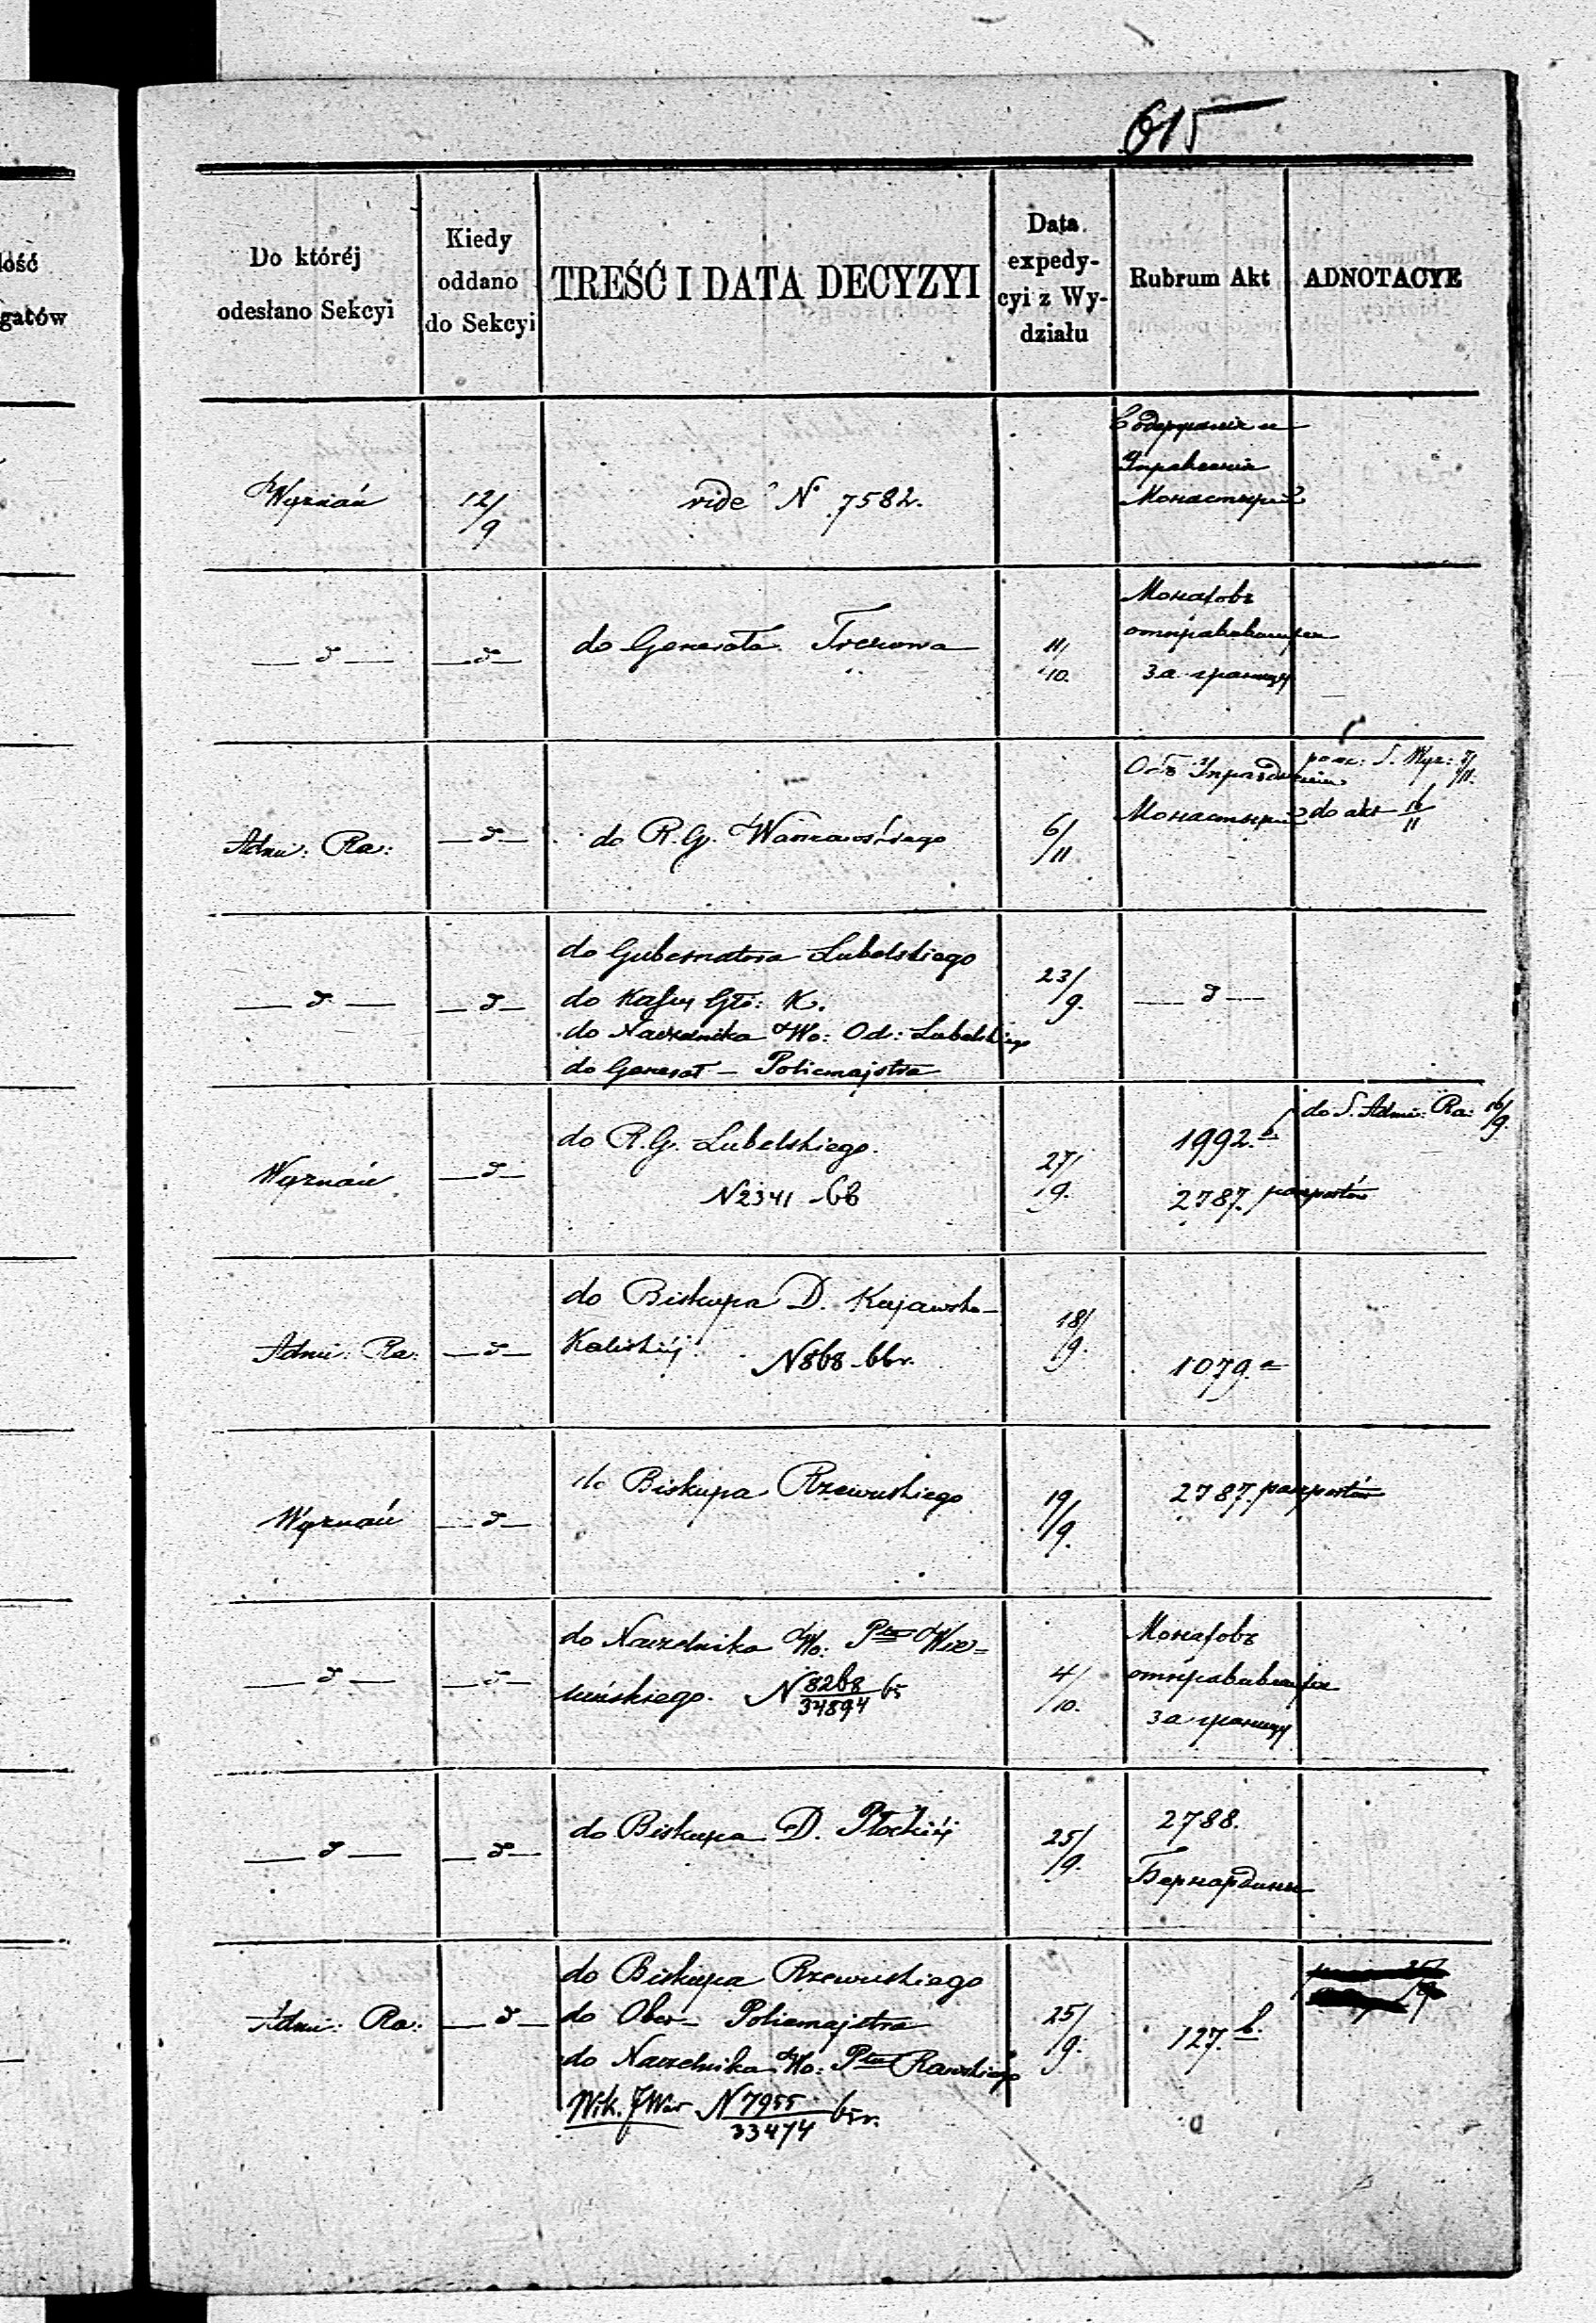 615
lość
gatów
Do któréj
odesłano Sekcyi
Kiedy
oddano
do Sekcyi
TREŚĆ I DATA DECYZYI
Data
expedy-
cyi z Wy-
działu
Rubrum Akt
ADNOTACYE
Wyznań
12/9
vide N° 7582.
Содержание и
Управление
Монастырей
— d —
— d —
do Generała Trepowa
11/10.
Монаховъ
отправивших
за границу
Adm: Ra:
— d —
do R. G. Warszawskiego
6/11
Монастырей
S. Wyz: 7/11.
do akt 16/11
— d —
— d —
do Gubernatora Lubelskiego
do Kassy Głó: K.
do Naczelnika Wo: Od: Lubelskiego
do Generał – Policmajstra
23/9.
— d —
Wyznań
— d —
do R. G. Lubelskiego.
N 2341 – 66
27/9.
1992. b
2787. paszportów
do S. Admi: Ra: 16/9.
Admi: Ra:
— d —
do Biskupa D. Kujawsko-
Kaliskiéj.
N 868 – 66 r.
18/9.
1079. a
Wyznań
— d —
do Biskupa Rzewuskiego
19/9.
2787. paszportów
— d —
— d —
do Naczelnika Wo: Ptu Wie=
luńskiego. N 8268/34894 65
4/10.
Монаховъ
за границу
— d —
— d —
do Biskupa D. Płockiéj
25/9.
2788.
Бернардины
Admi: Ra:
— d —
do Biskupa Rzewuskiego
do Ober – Policmajstra
do Naczelnika Wo: Ptu Rawskiego
N 7955/33474 65 r.
25/9.
127. b.